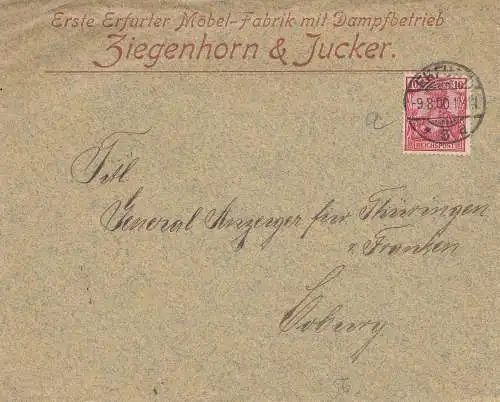 Erste Erfurter Möbel-Fabrik mit Dampfbetrieb
Ziegenhorn & Jucker.
ERFURT
10 10
-9.8.00
REICHSPOST
* 3 d
a
Titl
General Anzeiger für Thüringen
u Franken
Coburg